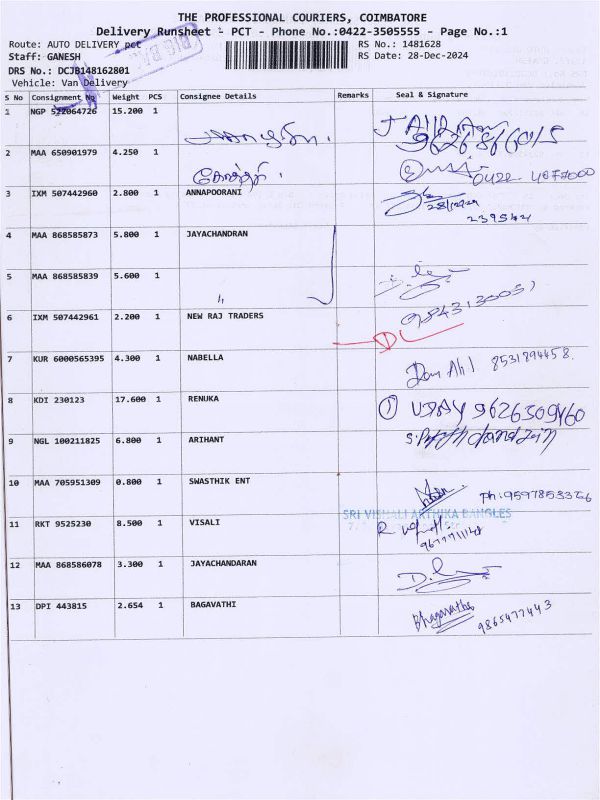 THE PROFESSIONAL COURIERS, COIMBATORE
Delivery Runsheet - PCT - Phone No.:0422-3505555 - Page No.:1
Route: AUTO DELIVERY pct RS No.: 1481628
Staff: GANESH RS Date: 28-Dec-2024
DRS No.: DCJB148162801
Vehicle: Van Delivery
S No Consignment No Weight PCS Consignee Details Remarks Seal & Signature
1 NGP 522064726 15.200 1
2 MAA 650901979 4.250 1
3 IXM 507442960 2.800 1 ANNAPOORANI
239542
4 MAA 868585873 5.800 1 JAYACHANDRAN
5 MAA 868585839 5.600 1 "
6 IXM 507442961 2.200 1 NEW RAJ TRADERS
7 KUR 6000565395 4.300 1 NABELLA 8531894458
8 KDI 230123 17.600 1 RENUKA ① UDAY 9626309460
9 NGL 100211825 6.800 1 ARIHANT
10 MAA 705951309 0.800 1 SWASTHIK ENT Ph: 9597853326
SRI VISHALI KARTHIKA BANGLES
11 RKT 9525230 8.500 1 VISALI
12 MAA 868586078 3.300 1 JAYACHANDARAN
13 DPI 443815 2.654 1 BAGAVATHI Bhagavathi 9865477443